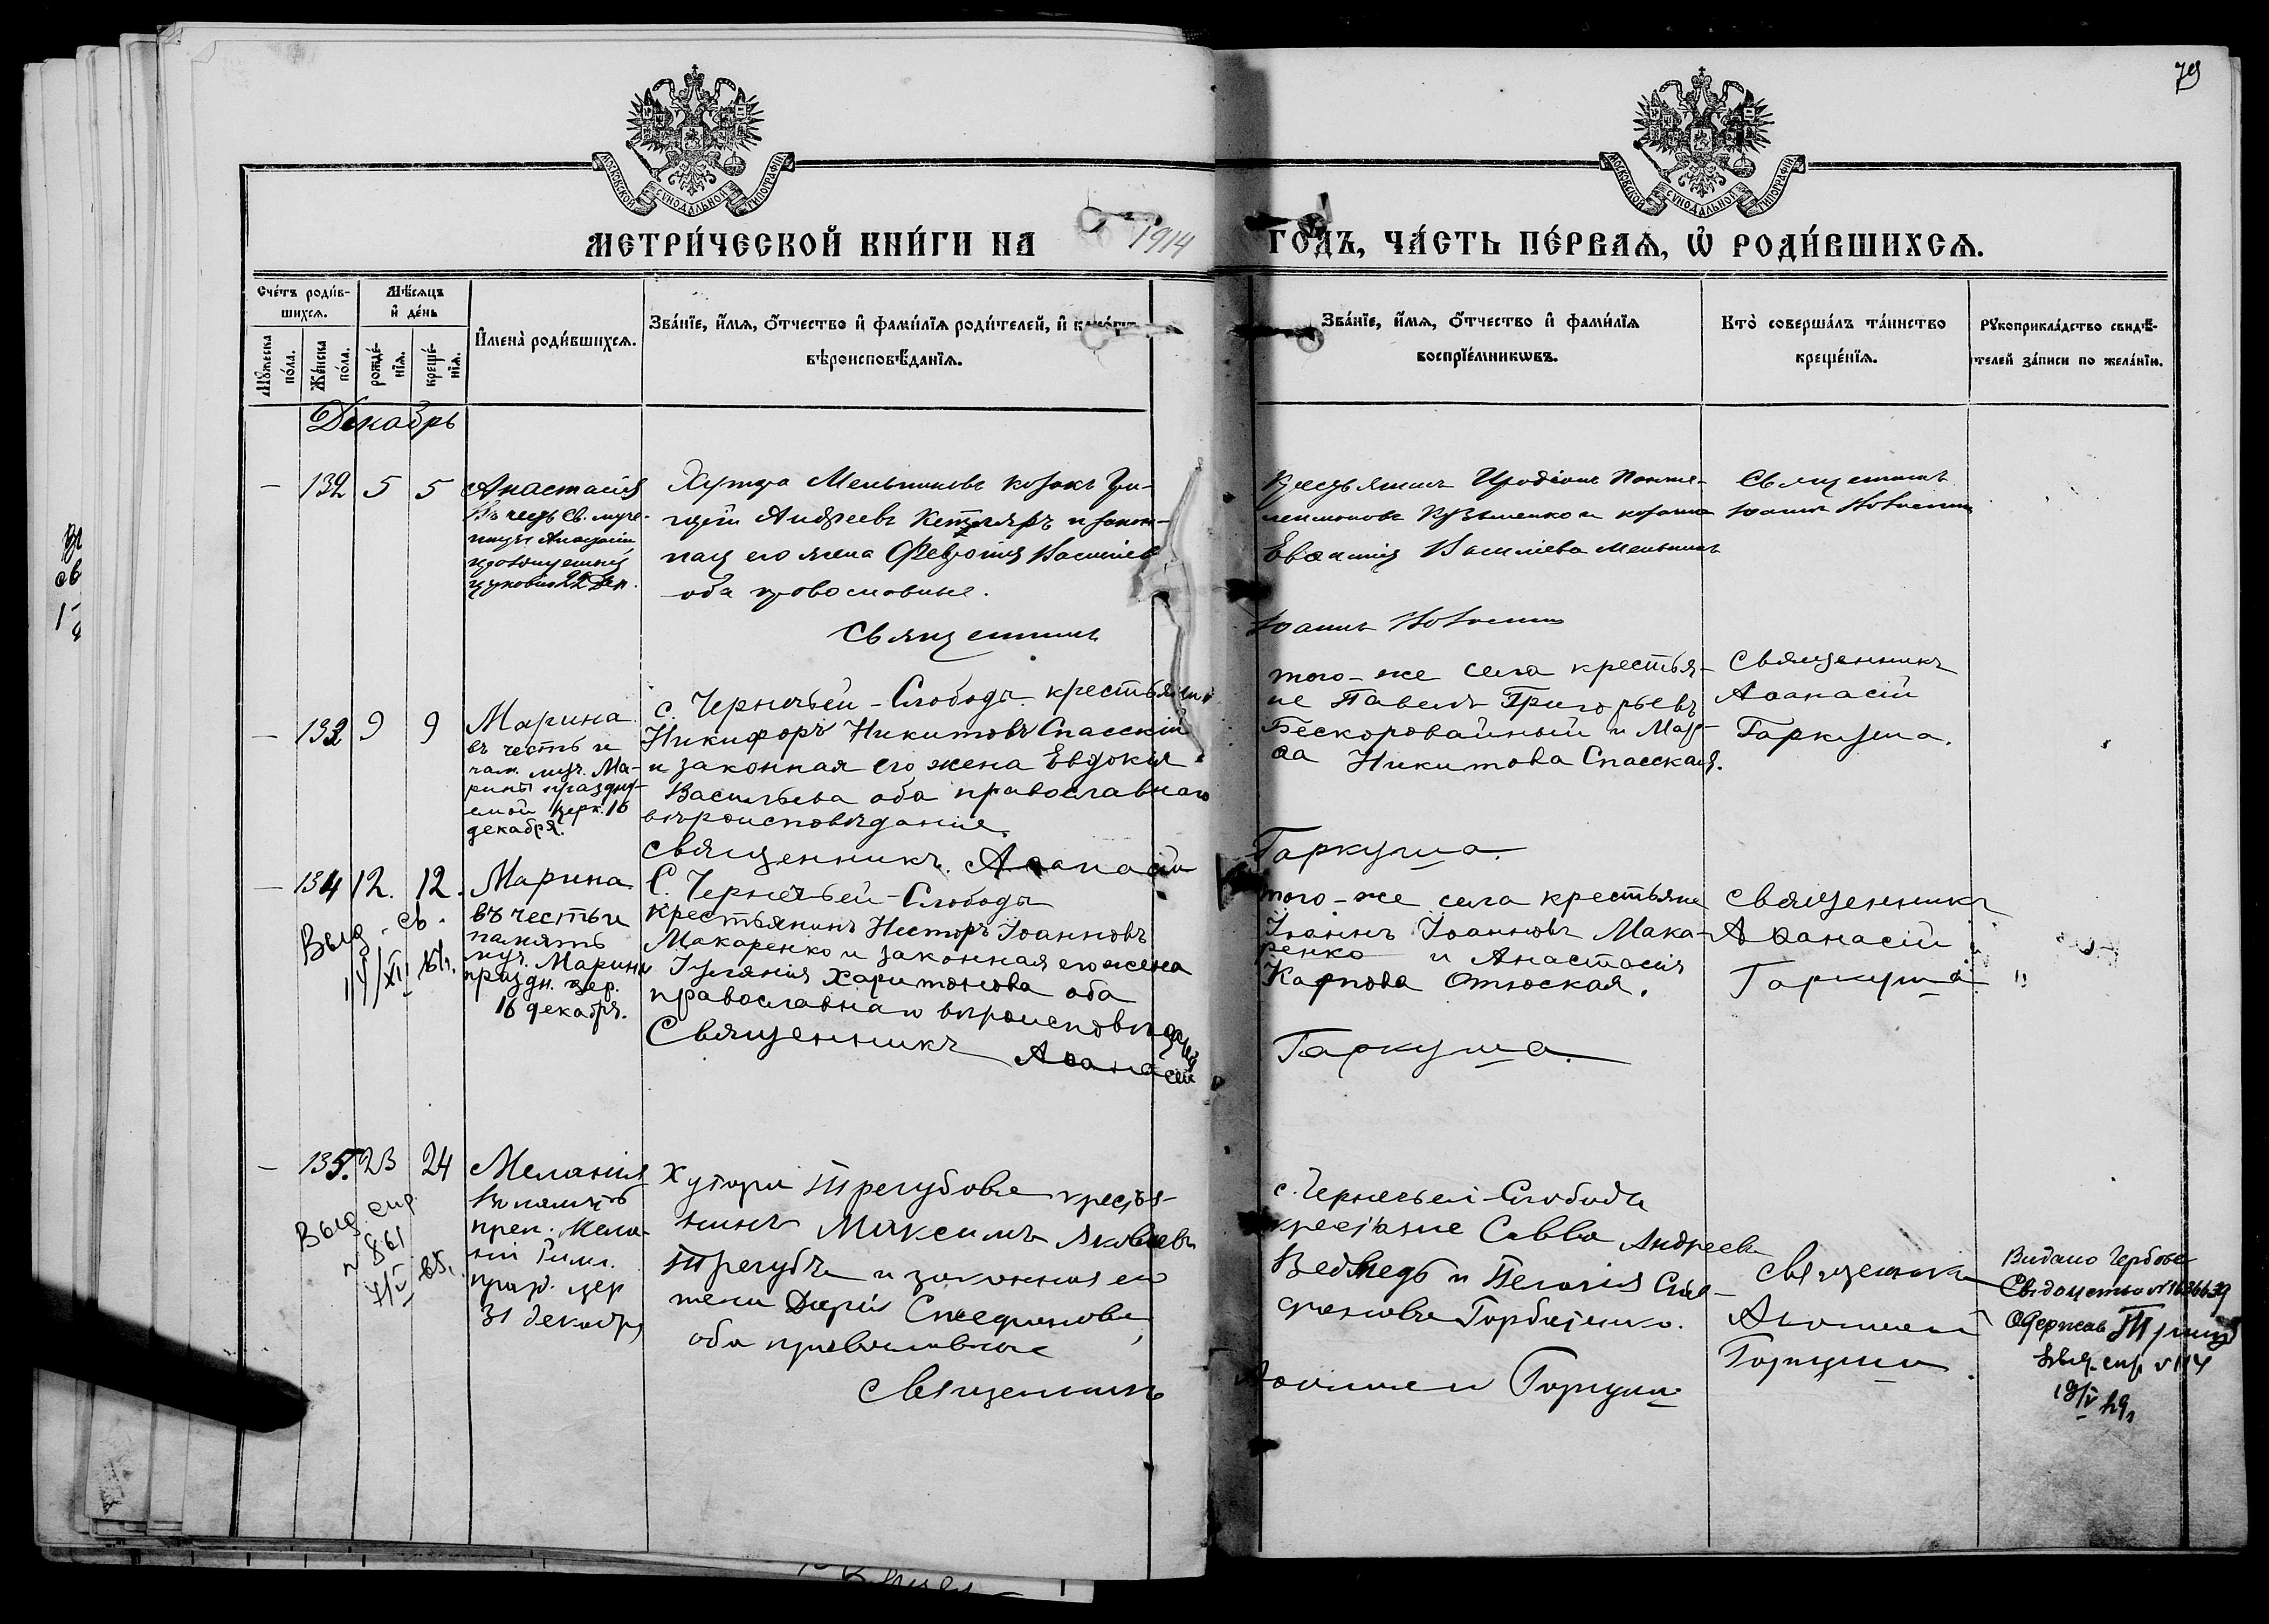 79
МОСКОВСКОЙ СУНОДАЛЬНОЙ ТИПОГРАФІИ
МОСКОВСКОЙ СУНОДАЛЬНОЙ ТИПОГРАФІИ
МЕТРИ́ЧЕСКОЙ КНИ́ГИ НА 1914 ГО́ДЪ, ЧА́СТЬ ПЕ́РВАѦ, Ѡ҆ РОДИ́ВШИХСѦ.
Сче́тъ роди́в-
шихсѧ.
Мꙋ́жеска
по́ла.
Же́нска
по́ла.
Мѣ́сѧцъ
и҆ де́нь
рожде́-
нїѧ.
креще́-
нїѧ.
И҆мена̀ роди́вшихсѧ.
Зва́нїе, и҆́мѧ, ѻ҆́тчество и҆ фами́лїѧ роди́телей, и҆
вѣроисповѣ́данїѧ.
Зва́нїе, и҆́мѧ, ѻ҆́тчество и҆ фами́лїѧ
воспрїе́мникѡвъ.
Кто̀ соверша́лъ та́инство
креще́нїѧ.
Рꙋкоприкла́дство свидѣ́-
телей за́писи по жела́нїю.
Декабрь
— 132 5 5
Анастасія
Въ честь Св. муче-
ницы
22 Дек.
Хутора Мельникова козакъ Гри-
горій Андреевъ и закон-
ная его жена Февронія Василіева
оба православные.
Священникъ
Крестьянинъ Иродіонъ Панте-
леимоновъ Кузьменко и козачка
Евфимія Василіева Мельникъ
Іоаннъ
Священникъ
Іоаннъ
— 133 9 9
Марина
въ честь и
пам. муч. Ма-
рины праздну-
емой церк. 16
декабря.
с. Чернечьей-Слободы крестьянинъ
Никифоръ Никитовъ Спасскій
и законная его жена Евдокія
Васильева оба православнаго
вѣроисповѣданія.
Священникъ Аѳанасій
того-же села крестья-
не Павелъ Григорьевъ
Бескоровайный и Мар-
ѳа Никитова Спасская.
Гаркуша.
Священникъ
Аѳанасій
Гаркуша.
— 134 12. 12.
Выд. св.
Марина
въ честь и
память
муч. Марины
праздн. цер.
16 декабря.
С. Чернечьей-Слободы
крестьянинъ Несторъ Іоанновъ
Макаренко и законная его жена
Іуліанія Харитонова оба
православнаго вѣроисповѣданія
Священникъ Аѳанасій
того-же села крестьяне
Іоаннъ Іоанновъ Мака-
ренко и Анастасія
Карпова
Гаркуша.
Священникъ
Аѳанасій
Гаркуша.
— 135. 23 24
Выд. спр.
№ 861
Меланія
Въ память
преп. Мела-
ніи Римл.
празд. цер
31 декабря
Хутора Трегубова кресть-
янинъ Максимъ Яковлевъ
Трегубъ и законная его
жена Дарія Стефанова
оба православные
Священникъ
с. Чернечьей-Слободы
крестьяне Савва Андреевъ
Ведмедь и Пелагія
Горбатенко.
Аѳанасій Гаркуша
Священникъ
Аѳанасій
Гаркуша.
Видано Гербове
Свідоцтво № 1636639
Одержав
спр. № 114
19/V 29 г.